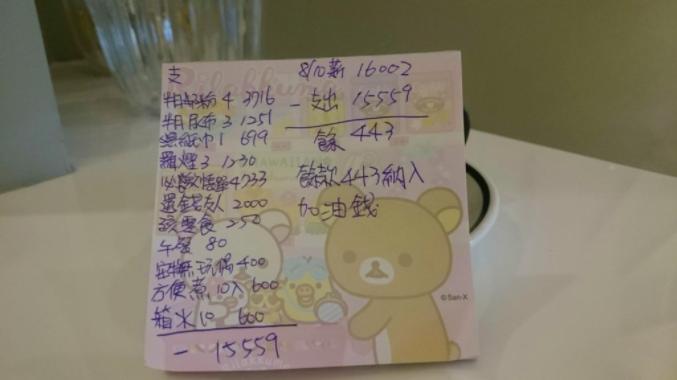 支
半月奶粉 4 3716
半月尿布 3 1251
濕紙巾 1 699
羅煙 3 1230
4733
還錢友人 2000
孩零食 250
午餐 80
安撫玩偶 400
方便煮 10入 600
箱水 10 600
- 15559
8/10薪 16002
- 支出 15559
餘 443
餘款443納入
加油錢
Rilakkuma
©San-X